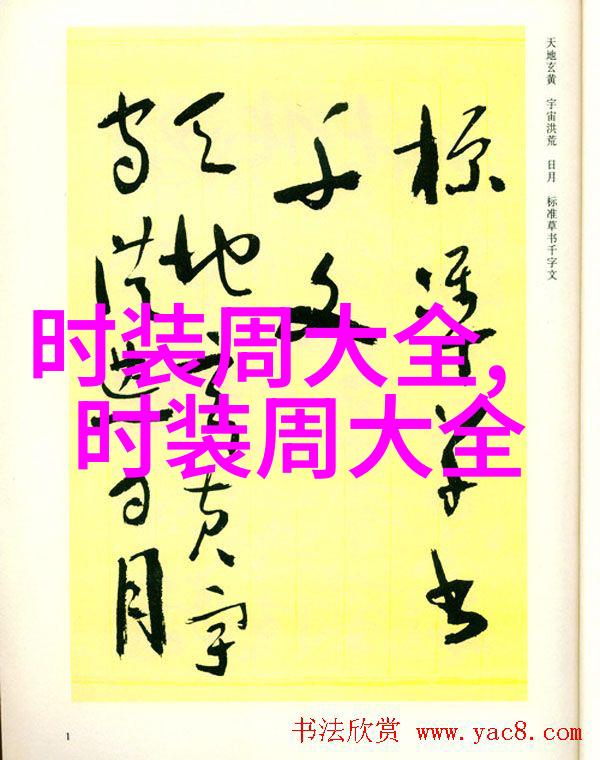 天地玄黄 宇宙洪荒 日月 标准草书千字文
标准草书
千文
天地玄黄宇
宙洪荒日月
时装周大全,
时装周大全
1
书法欣赏 www.yac8.com